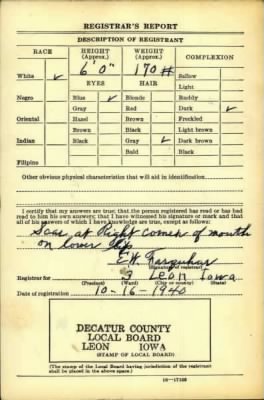 REGISTRAR'S REPORT
DESCRIPTION OF REGISTRANT
RACE HEIGHT (Approx.) WEIGHT (Approx.) COMPLEXION
White ✓ 6' 0" 170 # Sallow
EYES HAIR Light
Negro Blue ✓ Blonde Ruddy
Gray Red Dark ✓
Oriental Hazel Brown Freckled
Brown Black Light brown
Indian Black Gray ✓ Dark brown
Bald Black
Filipino
Other obvious physical characteristics that will aid in identification
I certify that my answers are true; that the person registered has read or has had
read to him his own answers; that I have witnessed his signature or mark and that
all of his answers of which I have knowledge are true, except as follows:
Scar at Right Corner of mouth
on lower Lip
E.W. Farquhar
(Signature of registrar)
Registrar for 3 Leon Iowa
(Precinct) (Ward) (City or county) (State)
Date of registration 10-16-1940
DECATUR COUNTY
LOCAL BOARD
LEON IOWA
(STAMP OF LOCAL BOARD)
(The stamp of the Local Board having jurisdiction of the registrant
shall be placed in the above space.)